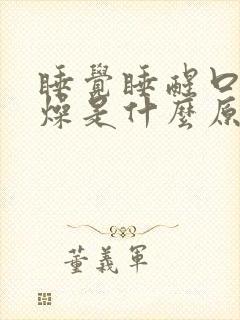 睡覺睡醒口
燥是什麼原
董義軍